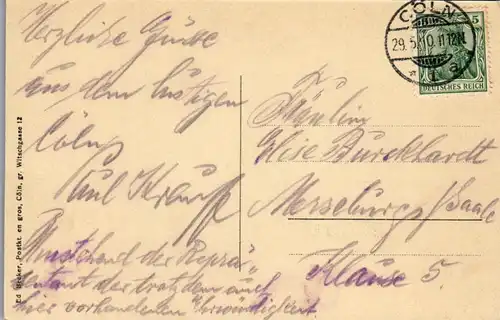 Herzliche Grüße
aus dem lustigen
Cöln
Paul Krauß
der Reprä-
sentant der trotzdem auch
hier vorhandenen Ehrwürdigkeit.
Ed. Becker, Postkt. en gros, Cöln, gr. Witschgasse 12
CÖLN
29.5.10. 11-12N
5
DEUTSCHES REICH
Fräulein
Elise Burckhardt
Merseburg/Saale
Klause 5.